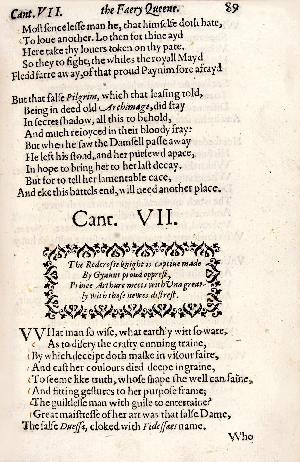 Cant. VII. the Faery Queene. 89
Most sencelesse man he, that himselfe doth hate,
To loue another. Lo then for thine ayd
Here take thy louers token on thy pate.
So they to fight; the whiles the royall Mayd
Fledd farre away, of that proud Paynim sore afrayd.
But that false Pilgrim, which that leasing told,
Being in deed old Archimage, did stay
In secret shadow, all this to behold,
And much reioyced in their bloudy fray:
But when he saw the Damsell passe away
He left his stond, and her pursewd apace,
In hope to bring her to her last decay.
But for to tell her lamentable cace,
And eke this battels end, will need another place.
Cant. VII.
The Redcrosse knight is captiue made
By Gyaunt proud opprest,
Prince Arthure meets with Vna great-
ly with those newes distrest.
VVHat man so wise, what earthly wit so ware,
As to discry the crafty cunning traine,
By which deceipt doth maske in visour faire,
And cast her coulours died deepe in graine,
To seeme like truth, whose shape she well can faine,
And fitting gestures to her purpose frame;
The guiltlesse man with guile to entertaine?
Great maistresse of her art was that false Dame,
The false Duessa, cloked with Fidessaes name.
Who